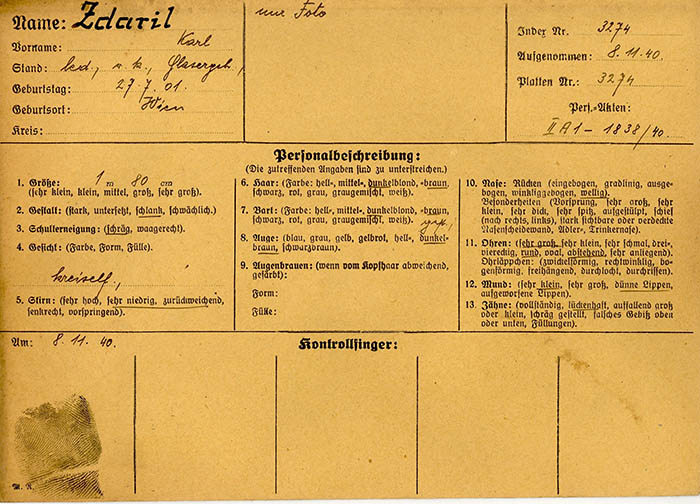 Name: Zdaril
Vorname: Karl
Stand: led, r. k., Glasergeh.,
Geburtstag: 27. 7. 01.
Geburtsort: Wien
Kreis:
nur Foto
Index Nr. 3274
Aufgenommen: 8. 11. 40.
Platten Nr.: 3274
Pers.-Akten:
II A1 - 1838/40.
Personalbeschreibung:
(Die zutreffenden Angaben sind zu unterstreichen.)
1. Größe: 1 m 80 cm
(sehr klein, klein, mittel, groß, sehr groß).
2. Gestalt: (stark, untersetzt, schlank, schwächlich).
3. Schulterneigung: (schräg, waagerecht).
4. Gesicht: (Farbe, Form, Fülle).
5. Stirn: (sehr hoch, sehr niedrig, zurückweichend,
senkrecht, vorspringend).
6. Haar: (Farbe: hell-, mittel-, dunkelblond, -braun,
schwarz, rot, grau, graugemischt, weiß).
7. Bart: (Farbe: hell-, mittel-, dunkelblond, -braun,
schwarz, rot, grau, graugemischt, weiß).
8. Auge: (blau, grau, gelb, gelbrot, hell-, dunkel-
braun, schwarzbraun).
9. Augenbrauen: (wenn vom Kopfhaar abweichend,
gefärbt):
Form:
Fülle:
10. Nase: Rücken (eingebogen, gradlinig, ausge-
bogen, winkliggebogen, wellig).
Besonderheiten (Vorsprung, sehr groß, sehr
klein, sehr dick, sehr spitz, aufgestülpt, schief
(nach rechts, links), stark sichtbare oder verdeckte
Nasenscheidewand, Adler-, Trinkernase).
11. Ohren: (sehr groß, sehr klein, sehr schmal, drei-,
viereckig, rund, oval, abstehend, sehr anliegend).
Ohrläppchen: (zwickelförmig, rechtwinklig, bo-
genförmig, freihängend, durchlocht, durchrissen).
12. Mund: (sehr klein, sehr groß, dünne Lippen,
aufgeworfene Lippen).
13. Zähne: (vollständig, lückenhaft, auffallend groß
oder klein, schräg gestellt, falsches Gebiß oben
oder unten, Füllungen).
Am: 8. 11. 40.
Kontrollfinger: